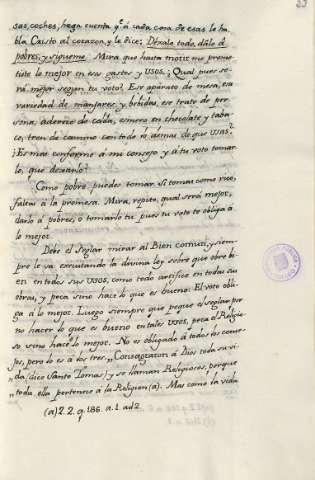 23
sas, coches, haga cuenta q.e á cada cosa de esas le ha-
bla Cristo al corazon, y le dice: Déxalo todo, dálo á
pobres, y sigueme. Mira que hasta morir me prome-
tiste lo mejor en tus gastos y usos. ¿Qual pues se-
rá mejor segun tu voto? Ese aparato de mesa, esa
variedad de manjares y bebidas, ese trato de per-
sona, aderezo de celda, esmero en chocolate y taba-
co, tren de camino con todo lo demas de que usas?
¿Es mas conforme á mi consejo y á tu voto tomar-
lo, que dexarlo?
Como pobre, puedes tomar. Si tomas como rico,
faltas á la promesa. Mira, repito, qual será mejor,
darlo á pobres, ó tomarlo tu, pues tu voto te obliga á
lo mejor.
Debe el Seglar mirar al Bien comun, y siem-
pre le va executando la divina ley sobre que obre bi-
en en todos sus usos, como todo artifice en todas sus
obras, y peca sino hace lo que es bueno. El voto obli-
ga á lo mejor. Luego siempre que peque el Seglar por
no hacer lo que es bueno en tales usos, peca el Religio-
so sino hace lo mejor. No es obligado á todos los conse-
jos, pero lo es á los tres. „Consagraron á Dios toda su vi-
„da (dice Santo Tomas) y se llaman Religiosos, porque
„toda ella pertenece á la Religion (a). Mas como la vida
(a) 2. 2. q. 186. a. 1. ad 2.